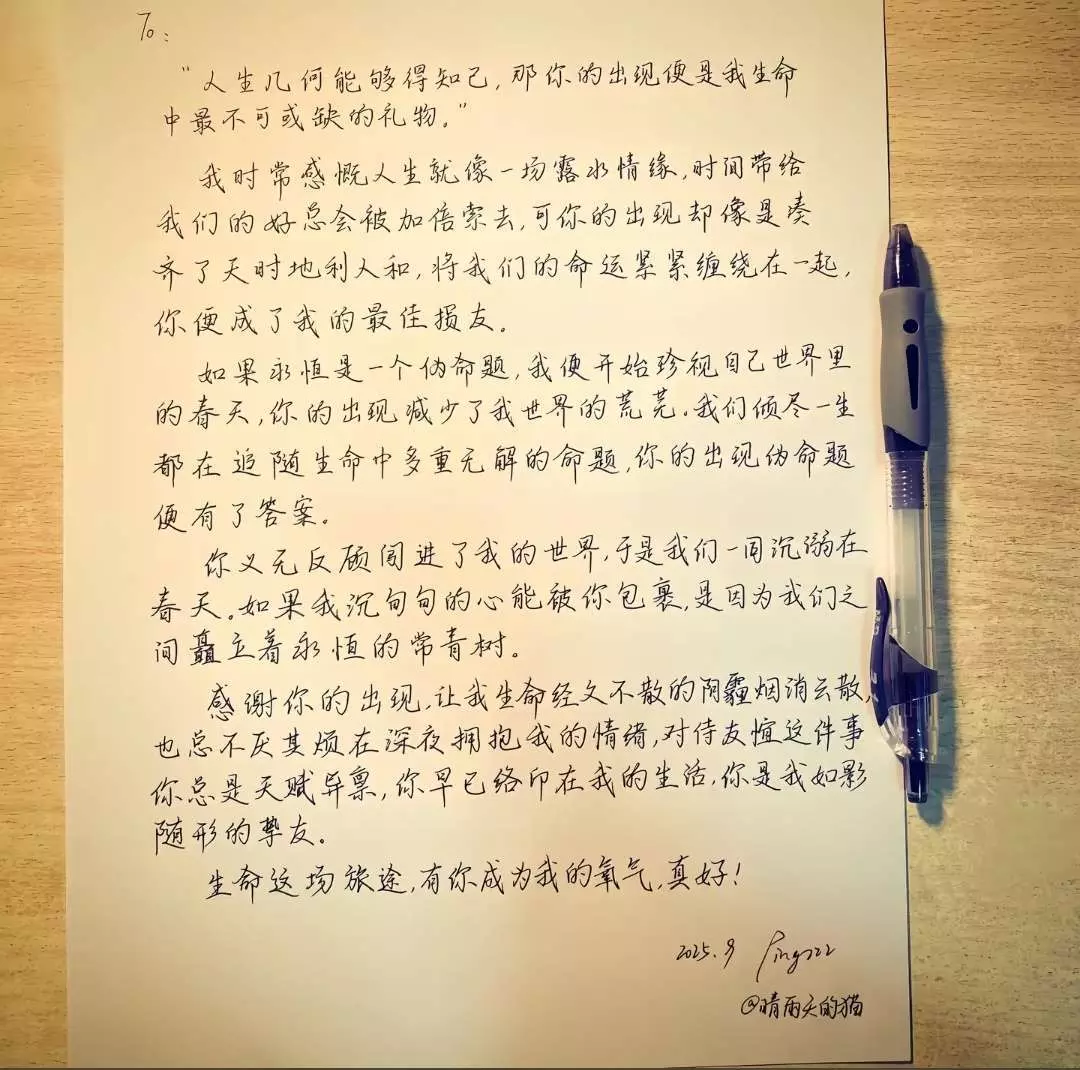 To:
“人生几何能够得知己，那你的出现便是我生命
中最不可或缺的礼物。”
我时常感慨人生就像一场露水情缘，时间带给
我们的好总会被加倍索去，可你的出现却像是凑
齐了天时地利人和，将我们的命运紧紧缠绕在一起，
你便成了我的最佳损友。
如果永恒是一个伪命题，我便开始珍视自己世界里
的春天，你的出现减少了我世界的荒芜。我们倾尽一生
都在追随生命中多重无解的命题，你的出现伪命题
便有了答案。
你义无反顾闯进了我的世界，于是我们一同沉溺在
春天。如果我沉甸甸的心能被你包裹，是因为我们之
间矗立着永恒的常青树。
感谢你的出现，让我生命经久不散的阴霾烟消云散，
也总不厌其烦在深夜拥抱我的情绪，对待友谊这件事
你总是天赋异禀，你早已络印在我的生活，你是我如影
随形的挚友。
生命这场旅途，有你成为我的氧气，真好！
2025.9
@晴雨天的猫